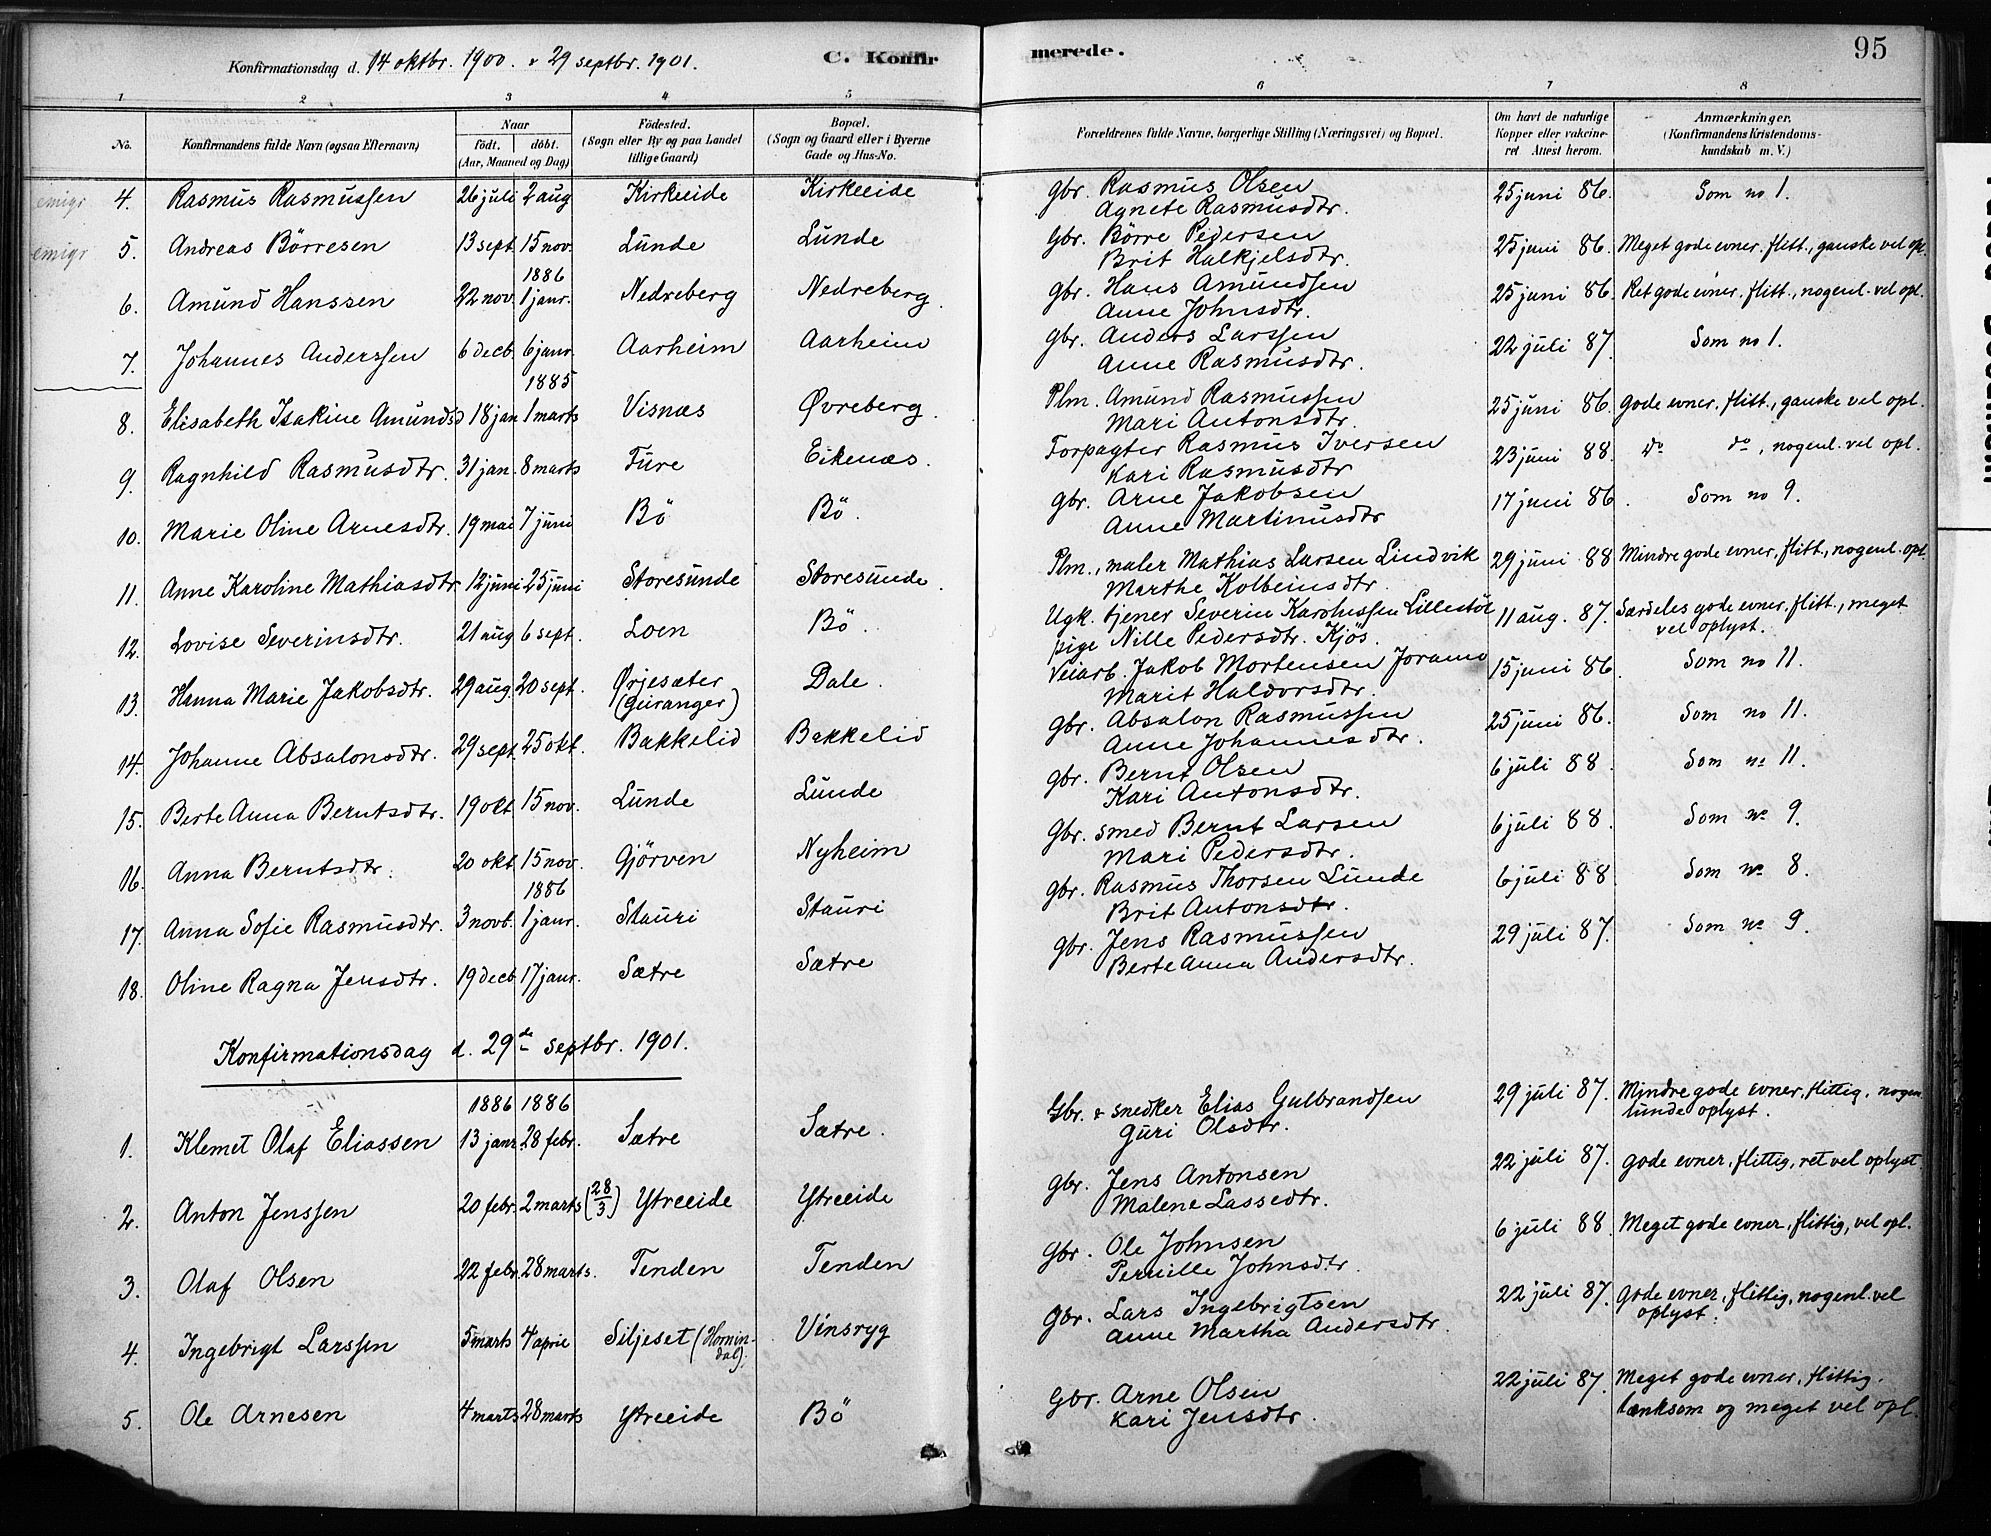 Konfirmationsdag d. 14 oktbr. 1900. & 29 septbr. 1901. C. Konfirmerede. 95
1 2 3 4 5 6 7 8
No. Konfirmandens fulde Navn (ogsaa Efternavn) Naar födt. döbt. (Aar, Maaned og Dag) Födested. (Sogn eller By og paa Landet tillige Gaard) Bopæl. (Sogn og Gaard eller i Byerne Gade og Hus-No. Forældrenes fulde Navne, borgerlige Stilling (Næringsvei) og Bopæl. Om havt de naturlige Kopper eller vakcineret Attest herom. Anmærkninger. (Konfirmandens Kristendomskundskab m. V.)
emigr 4. Rasmus Rasmussen 26 juli 2 aug Kirkeeide Kirkeeide Gbr. Rasmus Olsen 25 juni 86. Som no 1.
Agnete Rasmusdtr.
emigr 5. Andreas Börresen 13 sept. 15 nov. Lunde Lunde Gbr. Börre Pedersen 25 juni 86. Meget gode evner, flitt., ganske vel opl.
Brit Halkjelsdtr.
1886
6. Amund Hanssen 22 nov. 1 janr. Nedreberg Nedreberg. Gbr. Hans Amundsen 25 juni 86. Ret gode evner, flitt., nogenl. vel opl.
Anne Johnsdtr.
7. Johannes Anderssen 6 decb. 6 janr. Aarheim Aarheim Gbr. Anders Larssen 22 juli 87. Som no 1.
Anne Rasmusdtr.
1885
8. Elisabeth Isakine Amundsd 18 jan 1 marts Visnæs Øvreberg. Plm. Amund Rasmussen 25 juni 86. Gode evner, flitt., ganske vel opl.
Mari Antonsdtr.
9. Ragnhild Rasmusdtr. 31 jan. 8 marts Fure Eikenæs. Forpagter Rasmus Iversen 23 juni 88. do do, nogenl. vel opl.
Kari Rasmusdtr
10. Marie Oline Arnesdtr. 19 mai 7 juni Bö Bö. Gbr. Arne Jakobsen 17 juni 86. Som no 9.
Anne Martinusdtr
11. Anne Karoline Mathiasdtr 12 juni 25 juni Storesunde Storesunde. Plm., maler Mathias Larsen Lindvik 29 juni 88 Mindre gode evner, flitt., nogenl. opl.
Marthe Kolbeinsdtr.
12. Lovise Severinsdtr. 21 aug 6 sept. Loen Bö. Ugk. tjener Severin Karolussen Lillestöl 11 aug. 87. Særdeles gode evner, flitt., meget vel oplyst.
pige Nille Pedersdtr. Kjös.
13. Hanna Marie Jakobsdtr. 29 aug. 20 sept. Ørjesæter (Geiranger) Dale. Veiarb. Jakob Mortensen Joramo 15 juni 86. Som no 11.
Marit Haldorsdtr.
14. Johanne Absalonsdtr. 29 sept. 25 okt. Bakkelid Bakkelid Gbr. Absalon Rasmussen 25 juni 86. Som no 11.
Anne Johannesdtr.
15. Berte Anna Berntsdtr. 19 okt 15 nov. Lunde Lunde Gbr. Bernt Olsen 6 juli 88. Som no 11.
Kari Antonsdtr.
16. Anna Berntsdtr. 20 okt 15 nov. Gjörven Nyheim Gbr. smed Bernt Larsen 6 juli 88. Som no 9.
Mari Pedersdtr.
1886
17. Anna Sofie Rasmusdtr. 3 novb. 1 janr. Stauri Stauri Gbr. Rasmus Thorsen Lunde 6 juli 88 Som no 8.
Brit Antonsdtr.
18. Oline Ragna Jensdtr. 19 decb 17 janr. Sætre Sætre Gbr. Jens Rasmussen 29 juli 87. Som no 9.
Berte Anna Andersdtr.
Konfirmationsdag d. 29de septbr. 1901.
1886 1886
1. Klemet Olaf Eliassen 13 janr. 28 febr. Sætre Sætre. Gbr. & snedker Elias Gulbrandsen 29 juli 87. Mindre gode evner, flittig, nogenlunde oplyst.
Guri Olsdtr.
2. Anton Jenssen 20 febr. 2 marts (28/3) Ytreeide Ytreeide Gbr. Jens Antonsen 22 juli 87. Gode evner, flittig, ret vel oplyst.
Malene Lassedtr.
3. Olaf Olsen 22 febr. 28 marts. Tenden Tenden Gbr. Ole Johnsen 6 juli 88 Meget gode evner, flittig, vel opl.
Pernille Johnsdtr.
4. Ingebrigt Larssen 5 marts 4 april Siljeset (Hornindal). Vinsryg Gbr. Lars Ingebrigtsen 22 juli 87. Gode evner, flittig, nogenl. vel oplyst.
Anne Martha Andersdtr.
5. Ole Arnesen 4 marts 28 marts Ytreeide Bö Gbr. Arne Olsen 22 juli 87. Meget gode evner, flittig,
Kari Jensdtr. tænksom og meget vel opl.